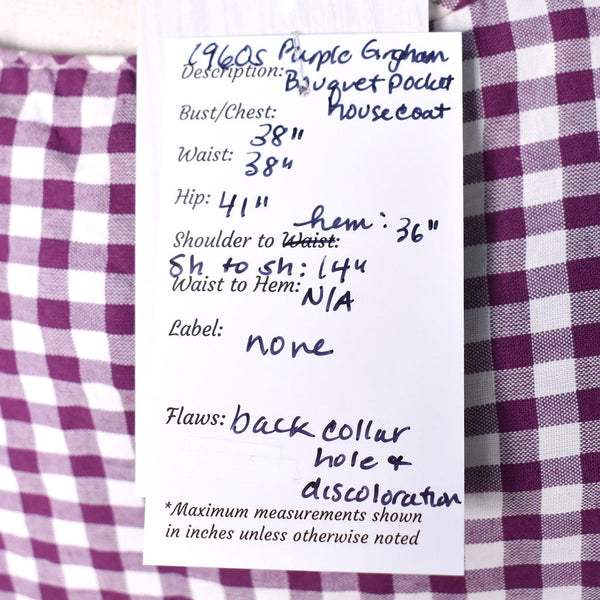 1960s Purple Gingham
Description: Bouquet Pocket
Bust/Chest: housecoat
38"
Waist: 38"
Hip: 41"
hem: 36"
Shoulder to Waist:
Sh. to sh: 14"
Waist to Hem: N/A
Label: none
Flaws: back collar
hole &
discoloration
*Maximum measurements shown
in inches unless otherwise noted